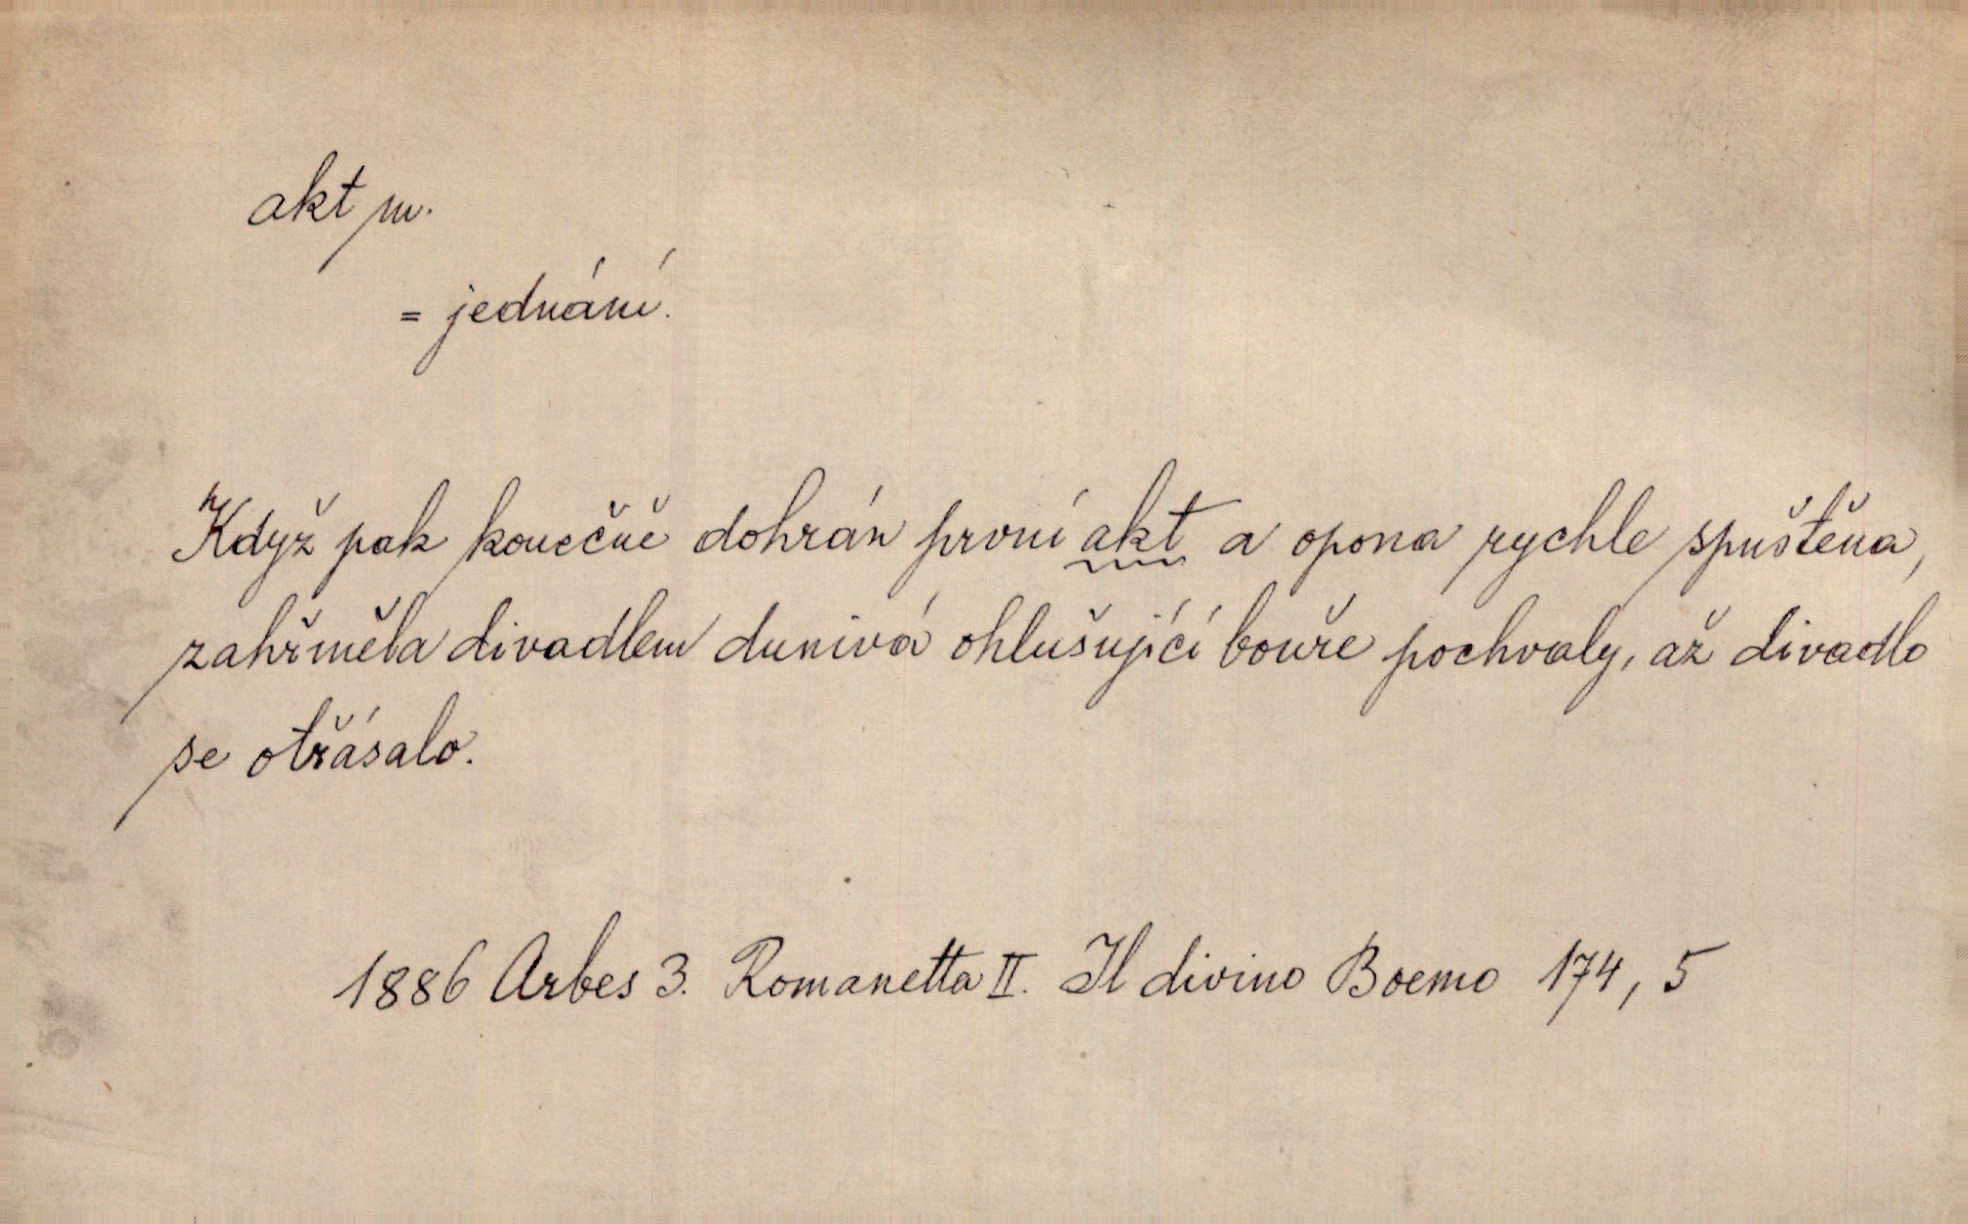 akt m.
= jednání.
Když pak konečně dohrán první akt a opona rychle spuštěna,
zahřměla divadlem dunivá ohlušující bouře pochvaly, až divadlo
se otřásalo.
1886 Arbes 3. Romanetta II. Il divino Boemo 174, 5